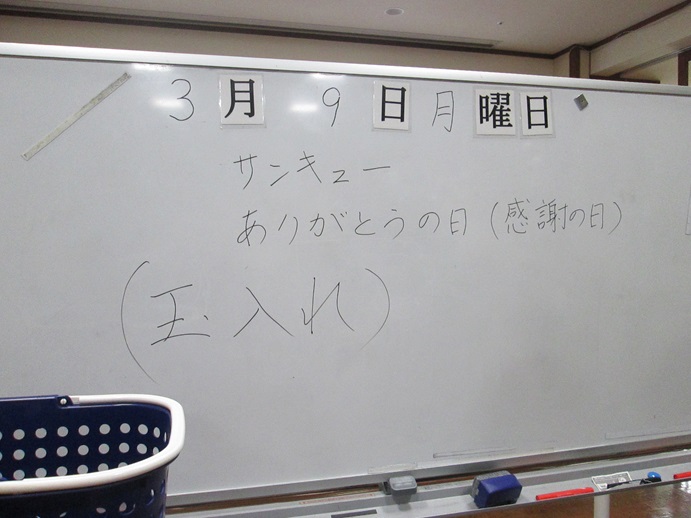 3月 9日月曜日
サンキュー
ありがとうの日(感謝の日)
(玉入れ)